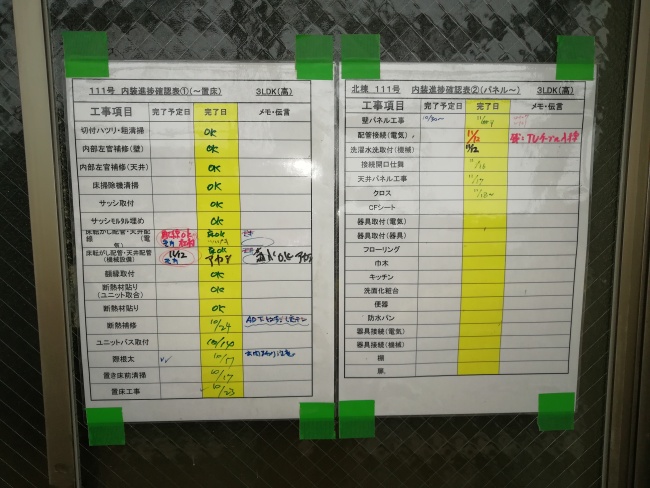 111号 内装進捗確認表①(～置床) 3LDK(高)
工事項目 完了予定日 完了日 メモ・伝言
切付ハツリ・粗清掃 OK
内部左官補修(壁) OK
内部左官補修(天井) OK
床掃除機清掃 OK
サッシ取付 OK
サッシモルタル埋め OK
床転がし配管・天井配管(電気)
床転がし配管・天井配管(機械設備) 11/12
額縁取付 OK
断熱材貼り(ユニット取合) OK
断熱材貼り OK
断熱補修 10/24
ユニットバス取付
際根太 10/17
置き床前清掃 10/17
置床工事 10/23
北棟 111号 内装進捗確認表②(パネル～) 3LDK(高)
工事項目 完了予定日 完了日 メモ・伝言
壁パネル工事 10/30～
配管接続(電気) 11/12
洗濯水洗取付(機械) 11/12
接続開口仕舞 11/16
天井パネル工事 11/17
クロス 11/18～
CFシート
器具取付(電気)
器具取付(器具)
フローリング
巾木
キッチン
洗面化粧台
便器
防水パン
器具接続(電気)
器具接続(機械)
棚
扉